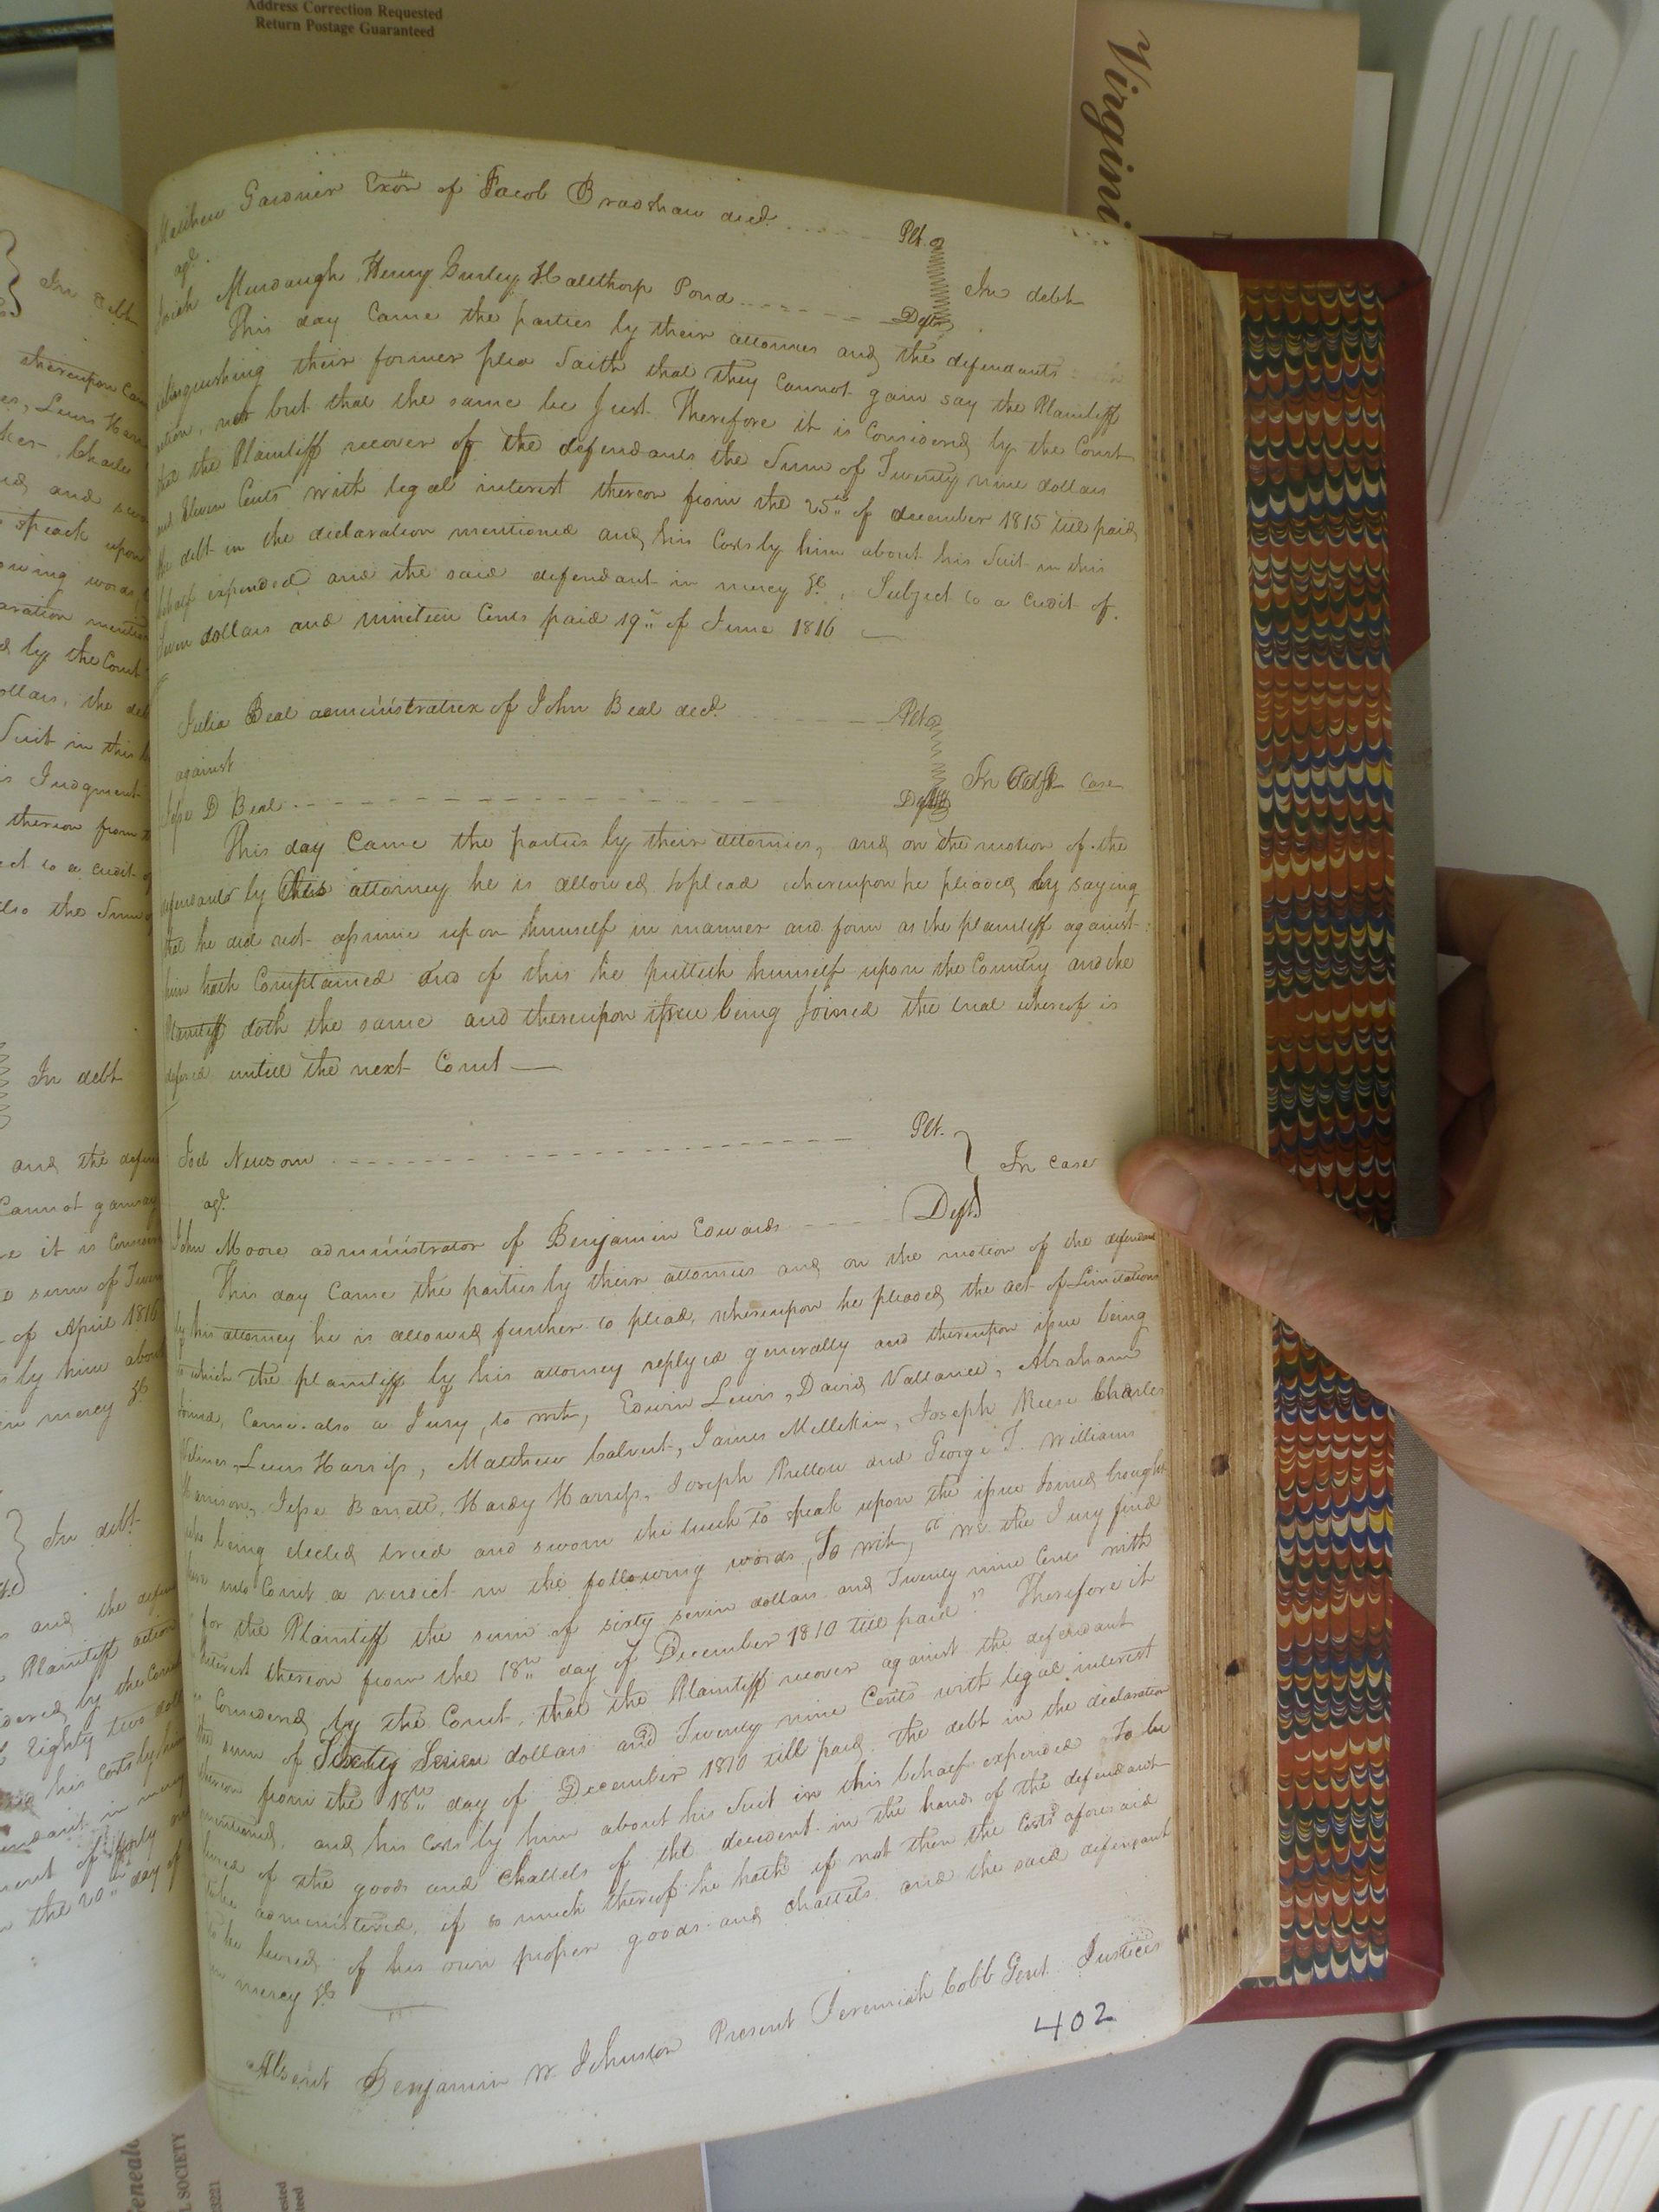 Address Correction Requested
Return Postage Guaranteed
Virgini
Matthew Gardner Exōr of Jacob Bradshaw decd. Plt.
agt.
Josiah Murdaugh, Henry Gurley, Halethorp Pond Defts
In debt
This day Came the parties by their attornies and the defendants
relinquishing their former plea Saith that they Cannot gain say the Plaintiff
action, nor but that the same be Just. Therefore it is Considered by the Court
that the Plaintiff recover of the defendants the Sum of Twenty nine dollars
and Eleven Cents with legal interest thereon from the 25th of december 1815 till paid
the debt in the declaration mentioned and his Costs by him about his Suit in this
behalf expended and the said defendant in mercy &c. Subject to a Credit of
Seven dollars and nineteen Cents paid 19th of June 1816
Julia Beal administratrix of John Beal decd. Plt
against
Jesse D Beal Deft
In Case
This day Came the parties by their attornies, and on the motion of the
defendants by his attorney he is allowed to plead whereupon he pleaded by saying
that he did not assume upon himself in manner and form as the plaintiff against
him hath Complained and of this he putteth himself upon the Country and the
Plaintiff doth the same and thereupon issue being Joined the trial whereof is
defered untill the next Court
Joel Newsom Plt.
agt.
John Moore administrator of Benjamin Edwards Deft.
In case
This day Came the parties by their attornies and on the motion of the defendant
by his attorney he is allowed further to plead, whereupon he pleaded the act of Limitations
to which the plaintiff by his attorney replyed generally and thereupon issue being
Joined, Came also a Jury, to wit, Edwin Lewis, David Vallance, Abraham
Lewis Harriss, Matthew Calvert, James Millikin, Joseph Reese Charles
Harrison, Jesse Barrett, Hardy Harriss, Joseph Prellow and George T. Williams
who being elected tried and sworn the truth to speak upon the issue Joined brought
here into Court a verdict in the following words, To wit, "We the Jury find
for the Plaintiff the sum of sixty seven dollars and Twenty nine Cents with
Interest thereon from the 18th day of December 1810 till paid" Therefore it
is Considered by the Court, that the Plaintiff recover against the defendant
the sum of Sixty Seven dollars and Twenty nine Cents with legal interest
thereon from the 18th day of December 1810 till paid the debt in the declaration
mentioned, and his Costs by him about his Suit in this behalf expended To be
levied of the goods and Chattels of the decedent in the hands of the defendant
to be administered, if so much thereof he hath if not then the Costs aforesaid
to be levied of his own proper goods and chattels and the said defendant
in mercy &c
Absent Benjamin W. Johnston Present Jeremiah Cobb Gent. Justices
402
In debt
thereupon Cam
Charles
speak upon
owing words
by the Court
Suit in this
is Judgment
thereon from
ect to a credit
also the Sum
In debt
and the defen
Cannot gainsay
re it is Consid
sum of Twen
of April 1816
by him about
in mercy &c
In debt
and the defen
Plaintiff action
dered by the Court
Eighty two doll
his Costs by him
endant in mercy
the 20th day of
L SOCIETY
23221